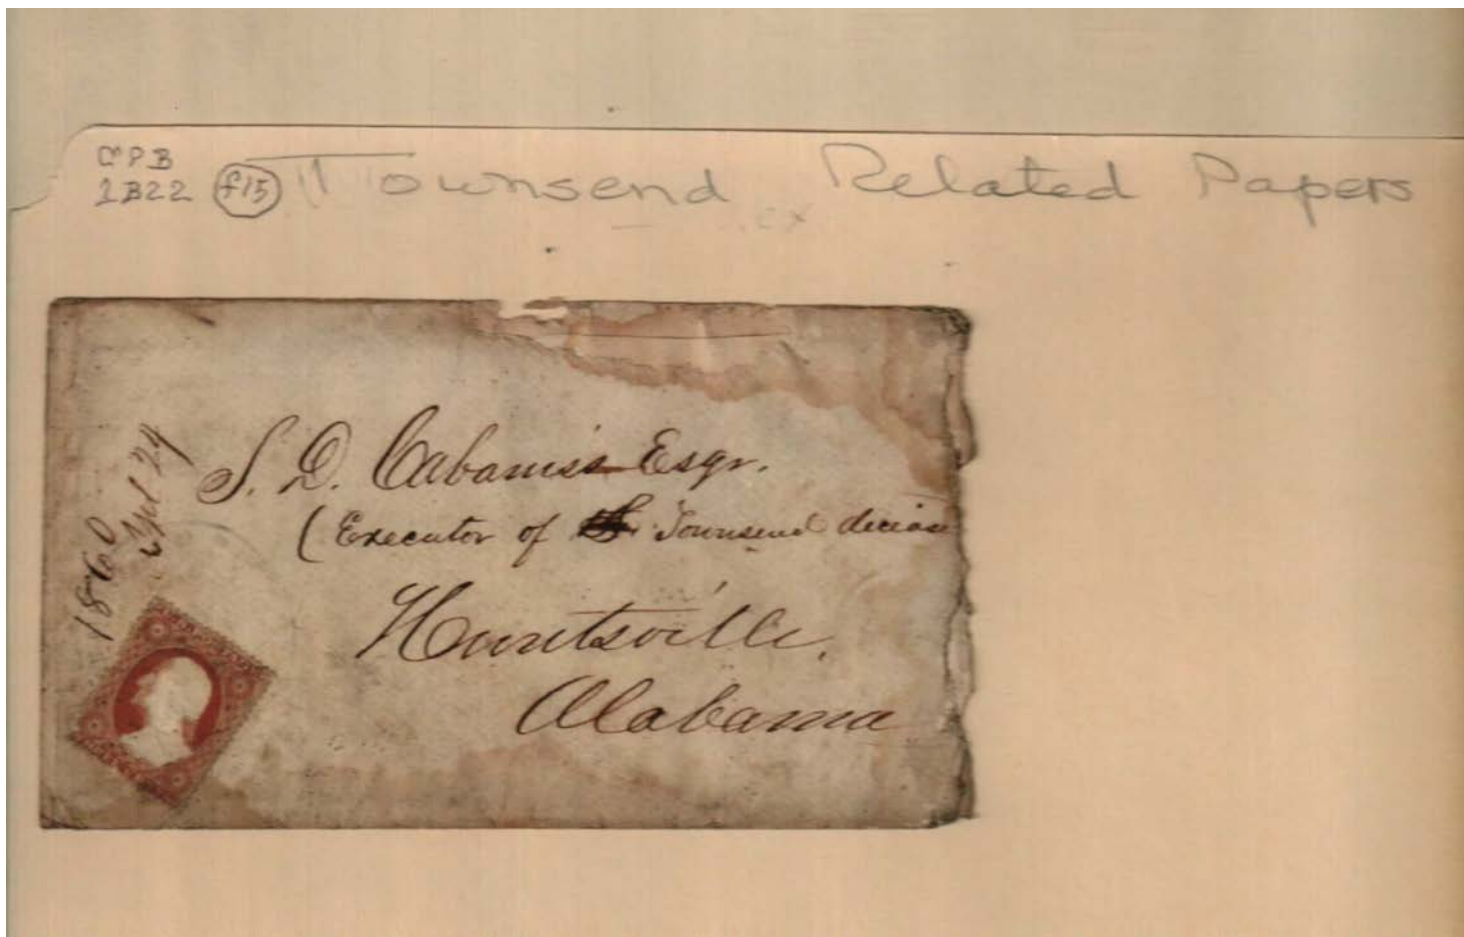 CPB
1B22 f15 Townsend Related Papers
ex
1860
Apl 24
S. D. Cabaniss Esqr.
(Executor of Townsend deceas
Huntsville,
Alabama